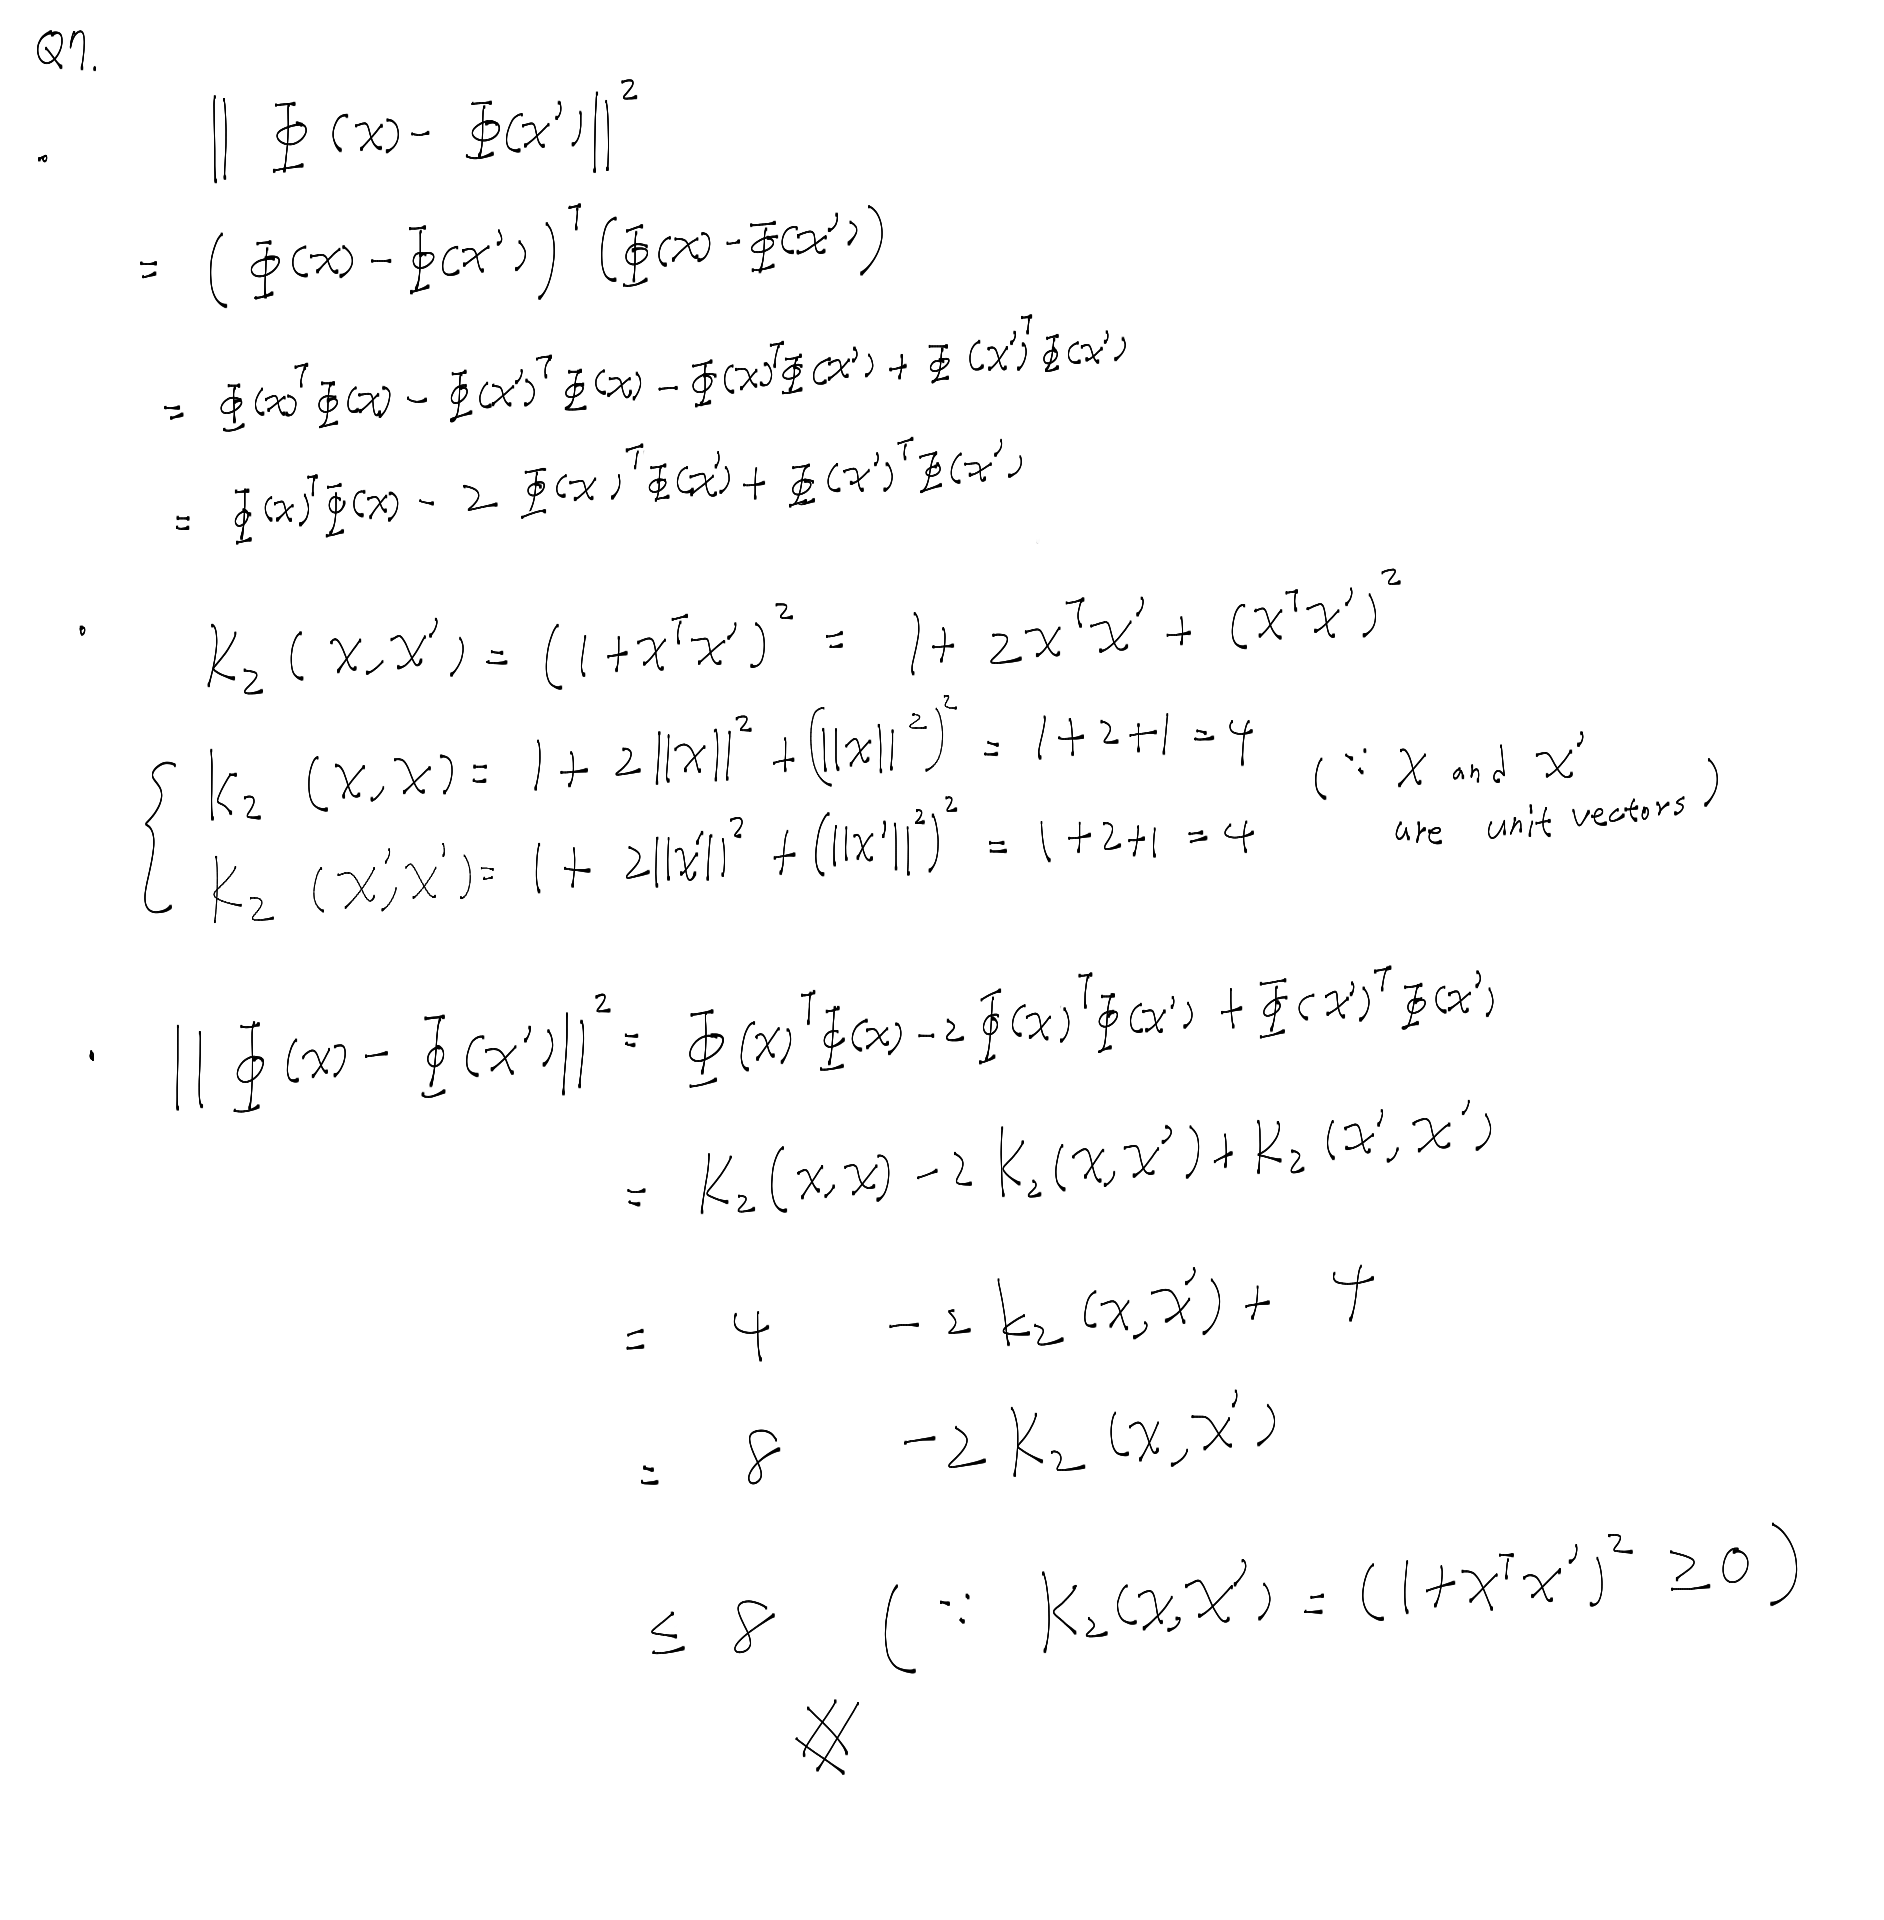 Q7.
• ‖Φ(x) - Φ(x')‖²
= (Φ(x) - Φ(x'))ᵀ(Φ(x) - Φ(x'))
= Φ(x)ᵀΦ(x) - Φ(x')ᵀΦ(x) - Φ(x)ᵀΦ(x') + Φ(x')ᵀΦ(x')
= Φ(x)ᵀΦ(x) - 2Φ(x)ᵀΦ(x') + Φ(x')ᵀΦ(x')
• K₂(x,x') = (1+xᵀx')² = 1 + 2xᵀx' + (xᵀx')²
K₂(x,x) = 1 + 2‖x‖² + (‖x‖²)² = 1+2+1 = 4 (∵ x and x'
K₂(x',x') = 1 + 2‖x'‖² + (‖x'‖²)² = 1+2+1 = 4 are unit vectors)
• ‖Φ(x) - Φ(x')‖² = Φ(x)ᵀΦ(x) - 2Φ(x)ᵀΦ(x') + Φ(x')ᵀΦ(x')
= K₂(x,x) - 2K₂(x,x') + K₂(x',x')
= 4 - 2K₂(x,x') + 4
= 8 - 2K₂(x,x')
≤ 8 (∵ K₂(x,x') = (1+xᵀx')² ≥ 0)
#